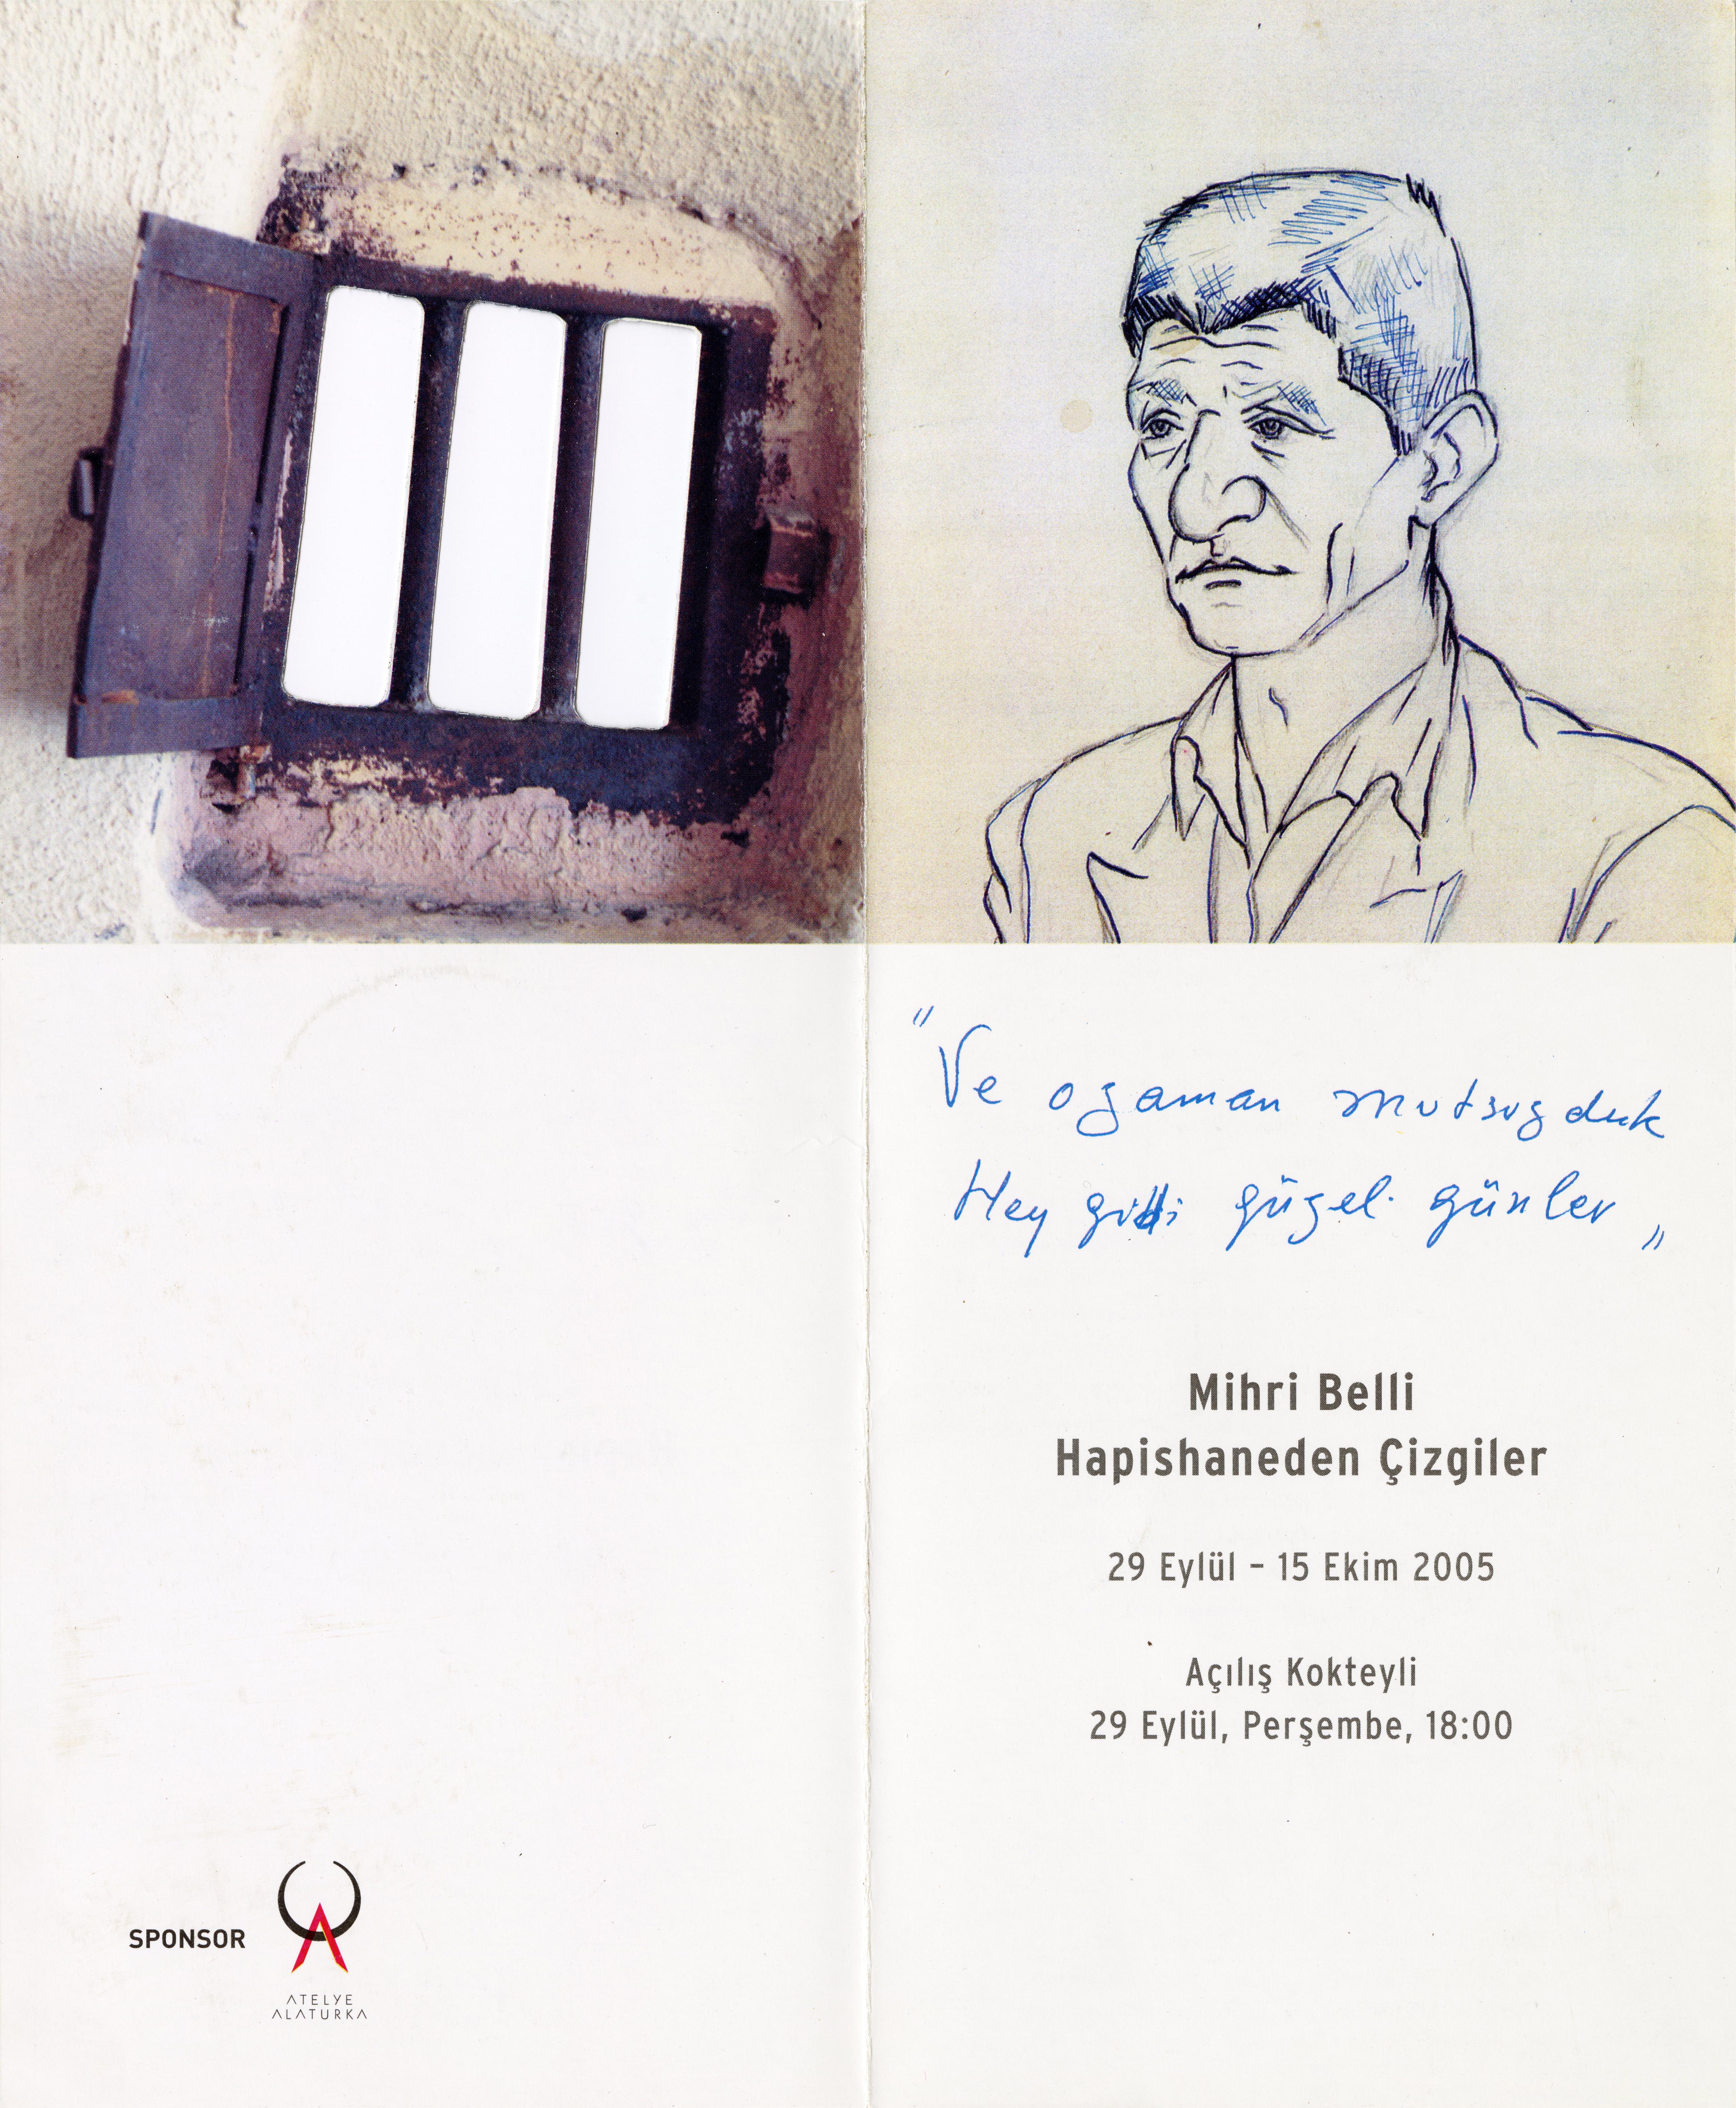 "Ve o zaman mutsuzduk
Hey gidi güzel günler"
Mihri Belli
Hapishaneden Çizgiler
29 Eylül – 15 Ekim 2005
Açılış Kokteyli
29 Eylül, Perşembe, 18:00
SPONSOR
ATELYE
ALATURKA